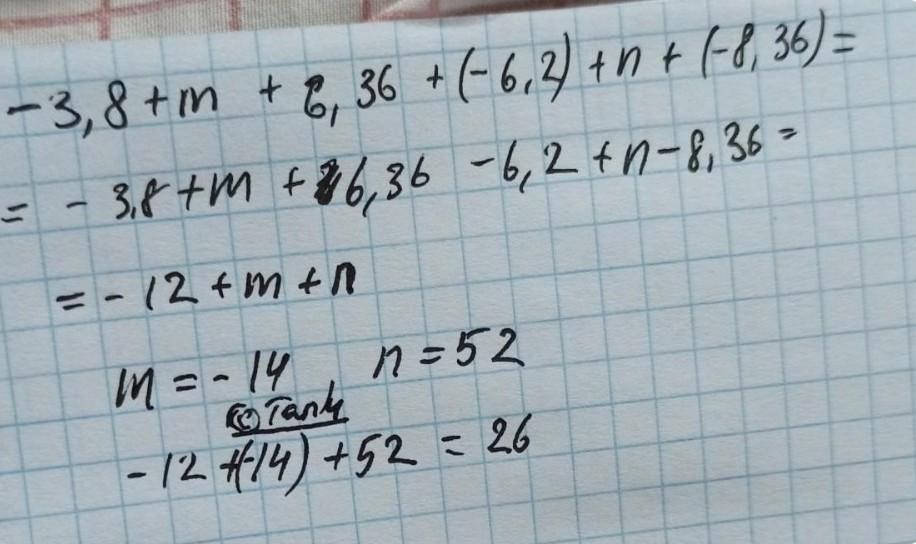 -3,8+m + 6,36 +(-6,2)+n+(-8,36)=
= -3,8+m+6,36 -6,2+n-8,36=
=-12+m+n
m=-14, n=52
©Tanч
-12+(-14)+52=26